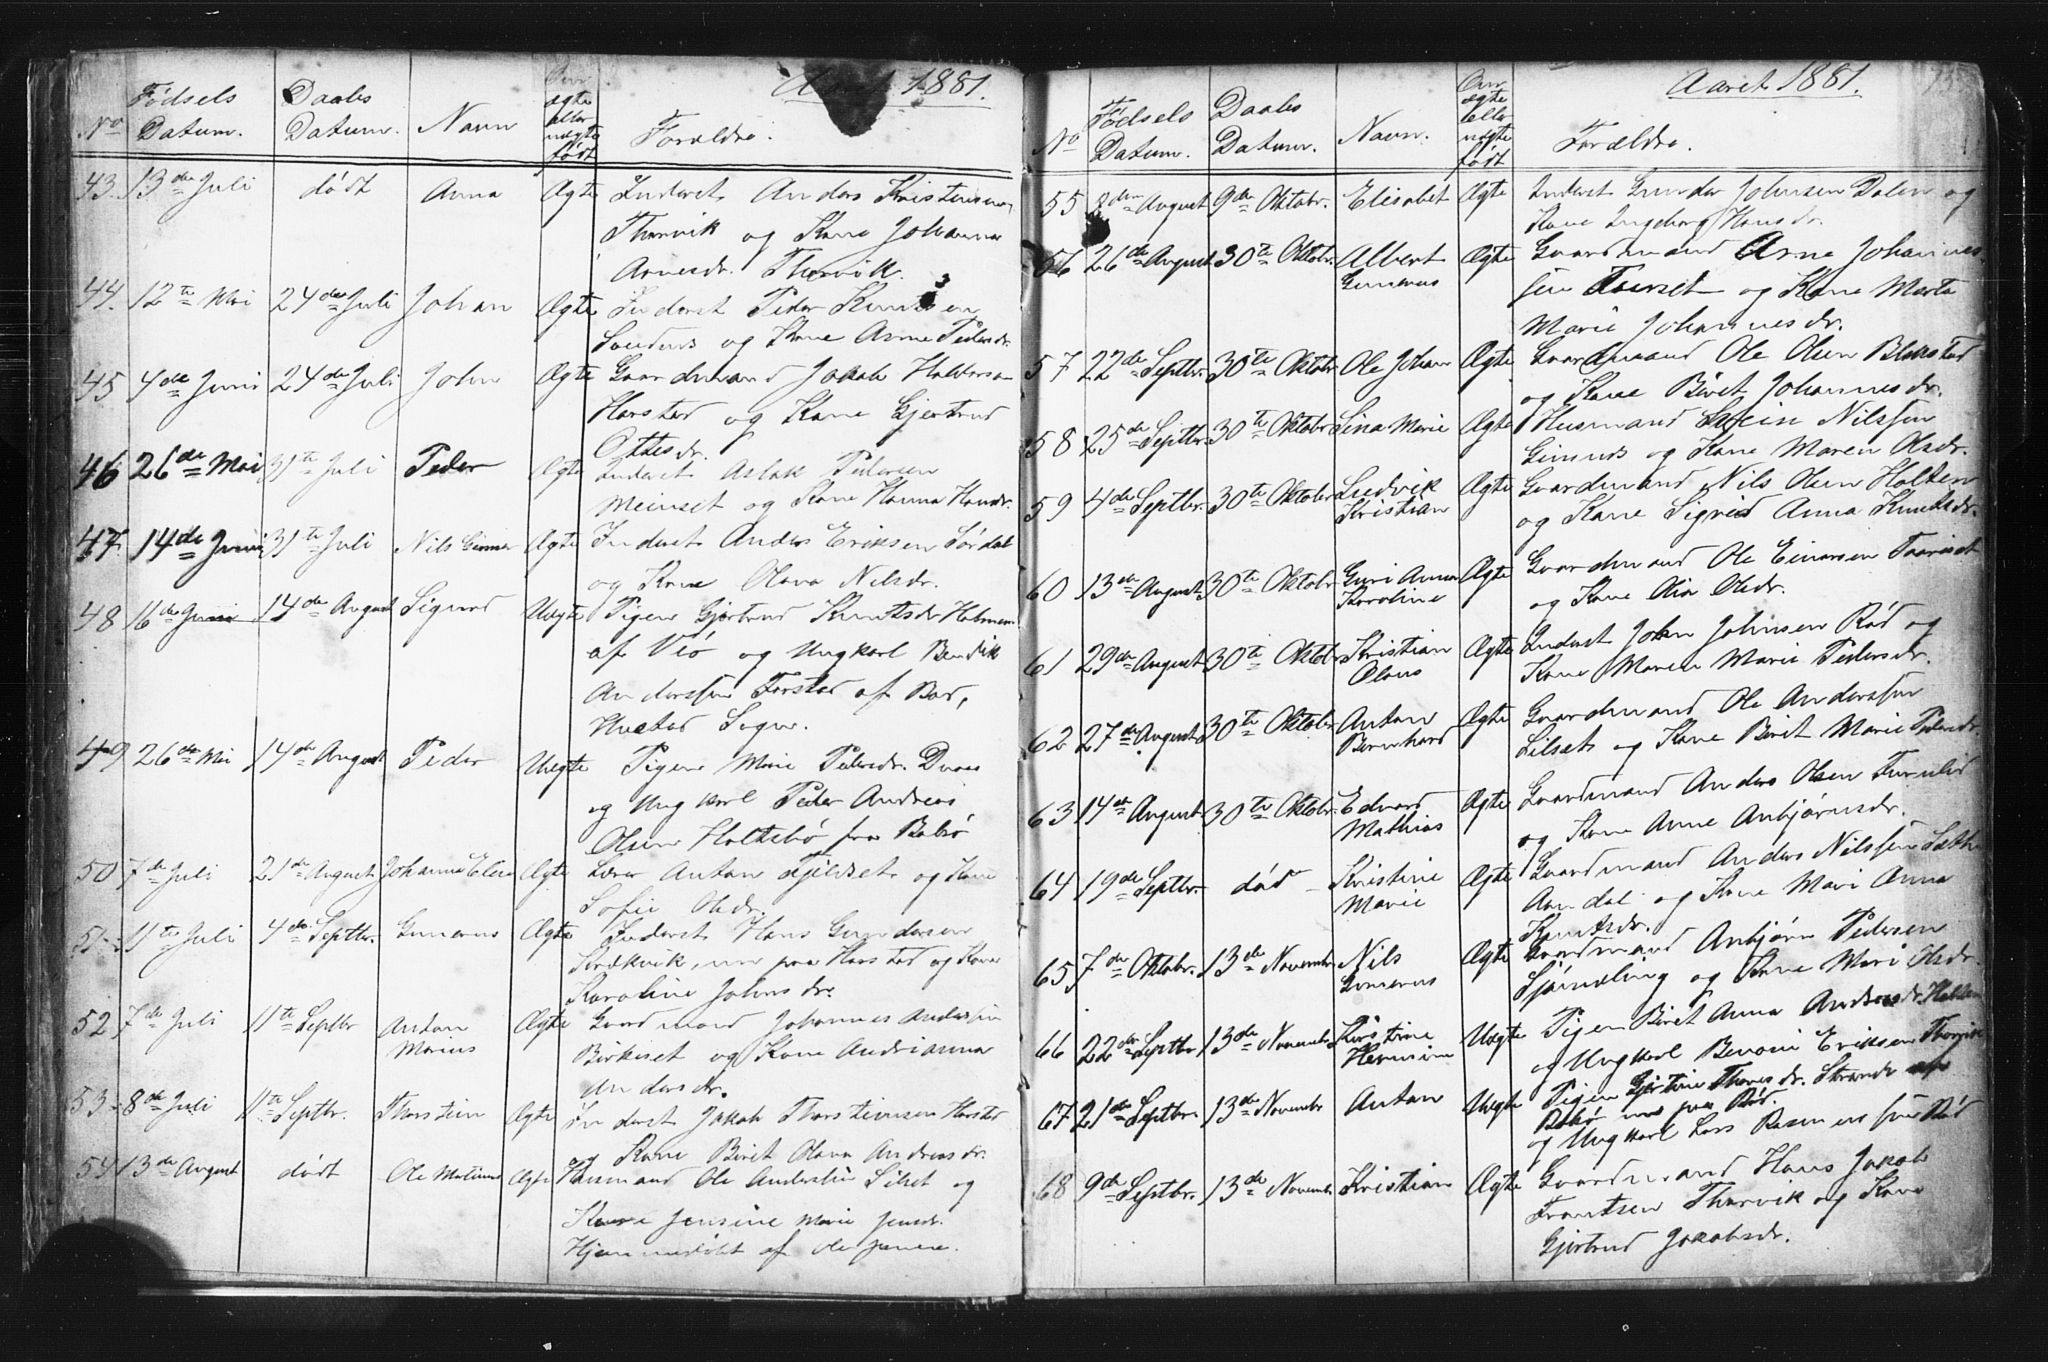 Aaret 1881.
No Fødsels Datum. Daabs Datum. Navn Om ægte eller uægte født Forældre.
43. 13de Juli dødt Anna Ægte Inderst Anders Kristensen
Thorvik og Kone Johanna
Arnesdr. Thorvik.
44. 12te Mai 24de Juli Johan Ægte Inderst Peder Knudsen
og Kone Anne Pedersdr.
45 4de Juni 24de Juli John Ægte Gaardmand Jakob Haldorsen
Harstad og Kone Gjertrud
Ottesdr.
46 26de Mai 31te Juli Peder Ægte Inderst Aslak Pedersen
Meinset og Kone Hanna Hansdr.
47. 14de Juni 31te Juli Nils Ægte Inderst Anders Eriksen Sørdal
og Kone Olava Nilsdr.
48 16de Juni 14de August Sigurd Uægte Pigen Gjertrud Knutsdr.
af Veø og Ungkarl Bendik
Anderssen Farstad af Bod,
Hustad Sogn.
49 26de Mai 14de August Peder Uægte Pigen Marie Pedersdr.
og Ungkarl Peder Andreas
Olsen Holtebø fra Bolsø
50 7de Juli 21de August Johanna Ægte Lærer Anton Fjeldset og Kone
Sofie Olsdr.
51 11te Juli 4de Septbr. Gunerus Ægte Inderst Hans Gundersen
nu paa Harstad og Kone
Karoline Johnsdr.
52 7de Juli 11te Septbr Anton Marius Ægte Gaardmand Johannes Anderssen
Birkeset og Kone Andrianna
Andersdr.
53 8de Juli 11te Septbr. Thorstein Ægte Inderst Jakob Thorsteinsen Harstad
og Kone Beret Olava Andreasdr.
54 13de August dødt Ole Ægte Husmand Ole Anderssen Silset og
Kone Jensine Marie Jensdr.
Hjemmedøbt af
Aaret 1881.
No Fødsels Datum. Daabs Datum. Navn. Om ægte eller uægte født Forældre.
55 August 9de Oktobr. Elisabet Ægte Inderst Gunder Johnsen Dalen og
Kone Ingeborg Hansdr.
56 26de August 30te Oktobr. Albert Gunerus Ægte Gaardmand Arne Johannes
sen og Kone Marta
Marie Johannesdr.
57 22de Septbr. 30te Oktobr Ole Johan Ægte Gaardmand Ole Olsen Blakstad
og Kone Beret Johannesdr.
58 25de Septbr. 30te Oktobr Sina Marie Ægte Husmand Svein Nilssen
Gimnes og Kone Maren Olsdr.
59 4de Septbr. 30te Oktobr Ludvik Kristian Ægte Gaardmand Nils Olsen Holten
og Kone Sigrid Anna Knutsdr.
60 13de August 30te Oktobr Guri Anna Karoline Ægte Gaardmand Ole Einarsen
og Kone Olsdr.
61 29de August 30te Oktobr Kristian Olaus Ægte Inderst John Johnsen Rød og
Kone Maren Marie Pedersdr.
62 27de August 30te Oktobr Anton Bernhard Ægte Gaardmand Ole Anderssen
Silset og Kone Beret Marie Pedersdr.
63 14de August 30te Oktobr Edvard Mathias Ægte Gaardmand Anders Olsen
og Kone Anne Anbjørnsdr.
64 19de Septbr. død Kristine Marie Ægte Gaardmand Anders Nilssen
og Kone Mari Anna
Knutsdr.
65 7de Oktobr. 13de Novembr Nils Gunerus Ægte Gaardmand Anbjørn Pedersen
og Kone Mari Olsdr.
66 22de Septbr 13de Novembr Kristine Uægte Pigen Beret Anna Andersdr.
og Ungkarl Benoni Eriksen Thorvik
67 21de Septbr. 13de Novembr Anton Uægte Pigen Gjertine Thoresdr. Strande af
Bolsø nu paa Rød.
og Ungkarl Lars Rasmussen Rød
68 9de Septbr. 13de Novembr Kristian Ægte Gaardmand Hans Jakob
Frantsen Thorvik og Kone
Gjertrud Jakobsdr.